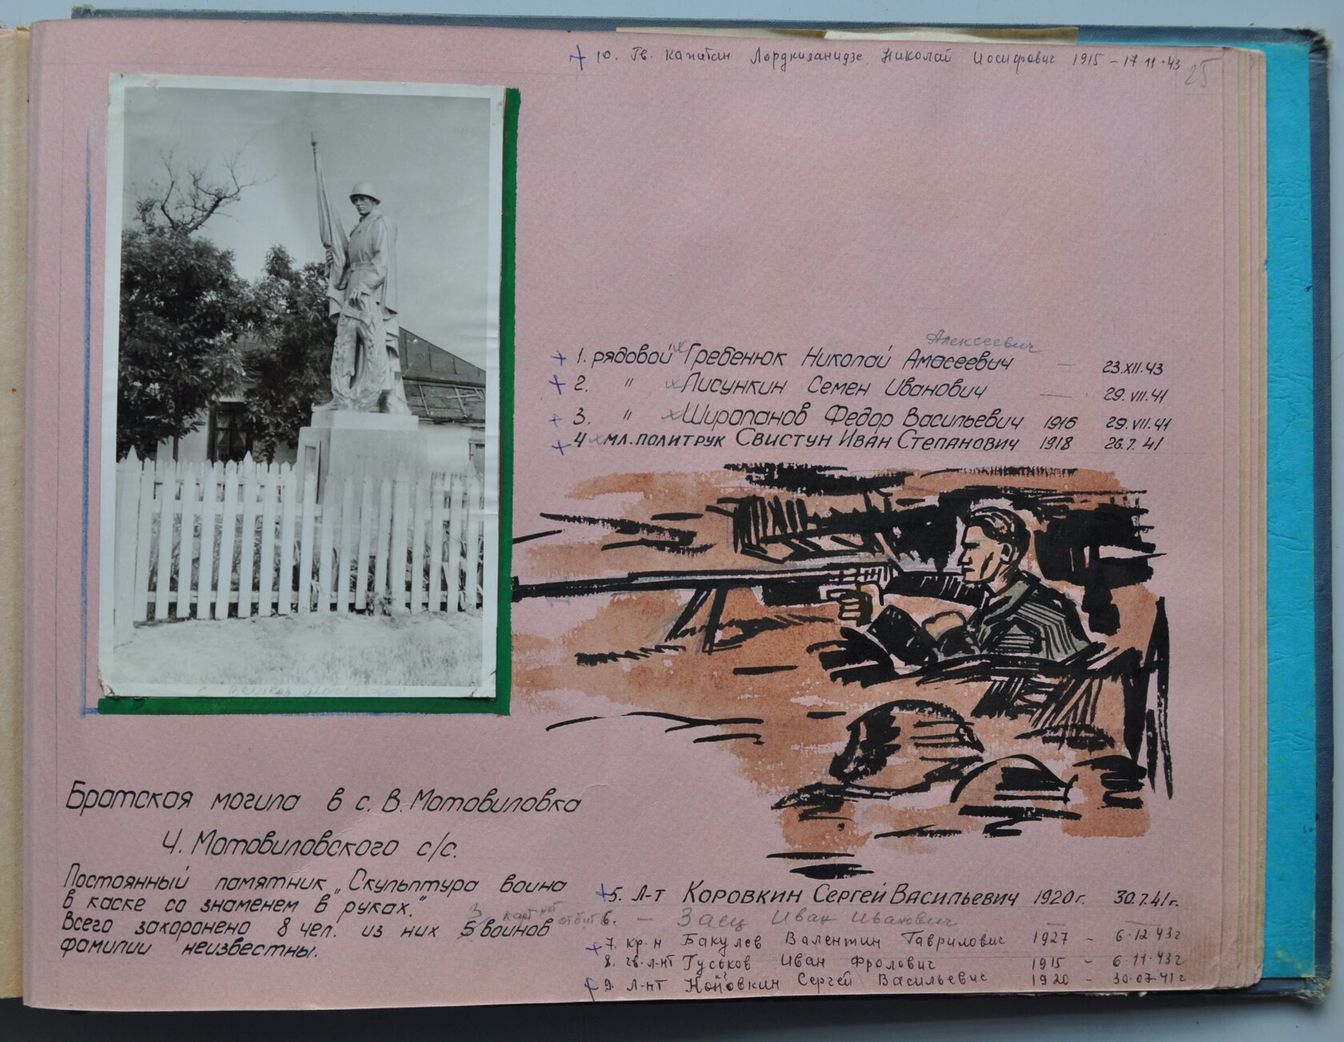 + 10. Гв. капитан Лордкипанидзе Николай Иосифович 1915 – 17.11.43
25
Алексеевич
+ 1. рядовой Гребенюк Николай Амасеевич — 23.XII.43
+ 2. " Лисункин Семен Иванович — 29.VII.41
+ 3. " Ширапанов Федор Васильевич 1916 29.VII.41
+ 4 мл. политрук Свистун Иван Степанович 1918 26.7.41
Братская могила в с. В. Мотовиловка
Ч. Мотовиловского с/с.
Постоянный памятник „Скульптура воина
в каске со знаменем в руках."
3
Всего захоронено 8 чел. из них 5 воинов
фамилии неизвестны.
+5. Л-т Коровкин Сергей Васильевич 1920г. 30.7.41г.
6. – Заец Иван Иванович —
+ 7. кр-н Бакулев Валентин Гаврилович 1927 – 6.12.43г
8. гв. л-нт Гуськов Иван Фролович 1915 – 6.11.43г
+ 9. л-нт Сергей Васильевич 1920 – 30.07.41г